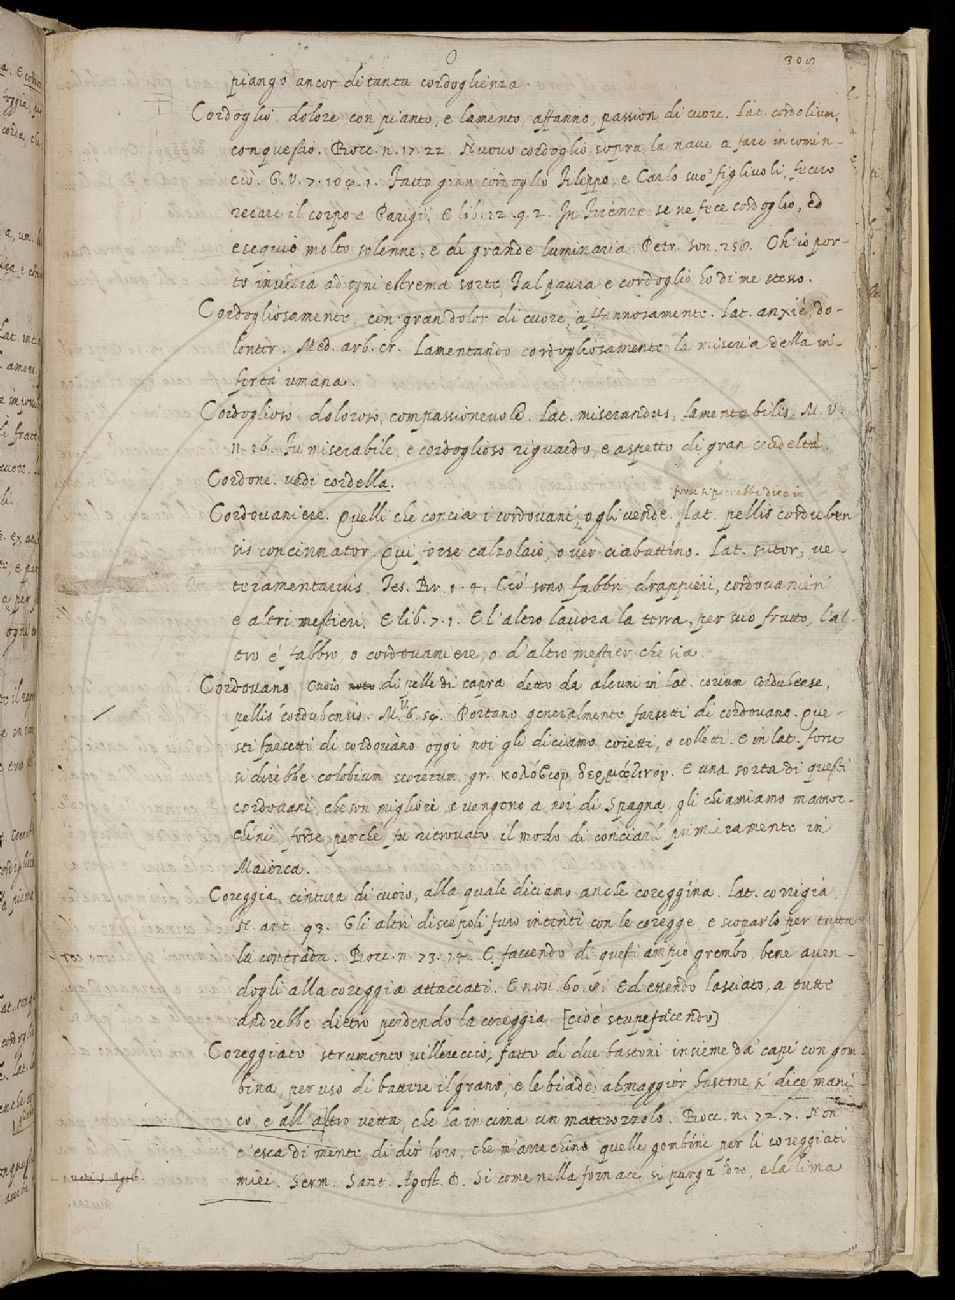 305
piango ancor di tanta cordoglienza.
Cordoglio dolore con pianto, e lamento, affanno, passion di cuore. Lat. cordolium,
conquestio. Bocc. n. 17. 22. Nuovo cordoglio sopra la nave a fare incomin-
ciò. G. V. 7. 104. 1. Fatto gran cordoglio Filippo, e Carlo suo' figliuoli, fecero
recare il corpo a Parigi. E lib. 12. 9. 2. In Firenze se ne fece cordoglio, ed
esequio molto solenne, e di grande luminaria. Petr. son. Ch' io por-
to invidia ad ogni estrema sorte, Tal paura e cordoglio ho di me stesso.
Cordogliosamente, con gran dolor di cuore, affannosamente. Lat. anxiè, do-
lentèr. Med. arb. cr. Lamentando cordogliosamente la miseria della in-
fertà umana.
Cordoglioso doloroso, compassionevole. Lat. miserandus, lamentabilis. M. V.
Fu miserabile, e cordoglioso riguardo, e aspetto di gran crudeltà.
Cordone. vedi cordella.
forse si potrebbe dire in
Cordovaniere. Quelli che concia i cordovani, o gli vende. Lat. pellis corduben
sis concinnator. Qui forse calzolaio, o ver ciabattino. Lat. sutor, ve-
teramentarius. Tes. Br. Ciò sono fabbri drappieri, cordovanieri
e altri mestieri. E lib. 7. 1. E l'altro lavora la terra, per suo frutto, l'al-
tro è fabbro, o cordovaniere, o d'altro mestier che sia.
Cordovano cuoio noto di pelle di capra detto da alcuni in lat. corium Cordubense,
pellis cordubensis. M. V. 6. 54. Portano generalmente farsetti di cordovano. Que-
sti farsetti di cordovano oggi noi gli diciamo coietti, o colletti. E in lat. forse
si direbbe colobium scorteum. gr. κολόβιον δερμάτινον. E una sorta di questi
cordovani, che son migliori e vengono a noi di Spagna, gli chiamiamo maroc-
chini, forse perchè fu ritrovato il modo di conciarli primieramente in
Maiorca.
Coreggia, cintura di cuoio, alla quale diciamo anche coreggina. Lat. corrigia.
N. ant. 93. Gli altri discepoli furo incenti con le coregge, e scoparlo per tutta
la contrada. Bocc. n. 73. 14. E, faccendo di questi ampio grembo, bene aven-
dogli alla coreggia attaccati. E nov. 60. Ed essendo lasciato, a tutte
andrebbe dietro perdendo la coreggia [cioè stupefacendo]
Coreggiato strumento villereccio, fatto di due bastoni insieme da capi con gom-
bina, per uso di battere il grano, e le biade: al maggior bastone si dice mani-
co e all'altro vetta, che la in cima un mattozzolo. Bocc. n. 72. 7. Non
t'esca di mente di dir loro, che m'arrechino quelle gombine per li coreggiati
miei. Serm. Sant. Agost. D. Si come nella fornace si purga l'oro, e la lima
vedi S. Agost.